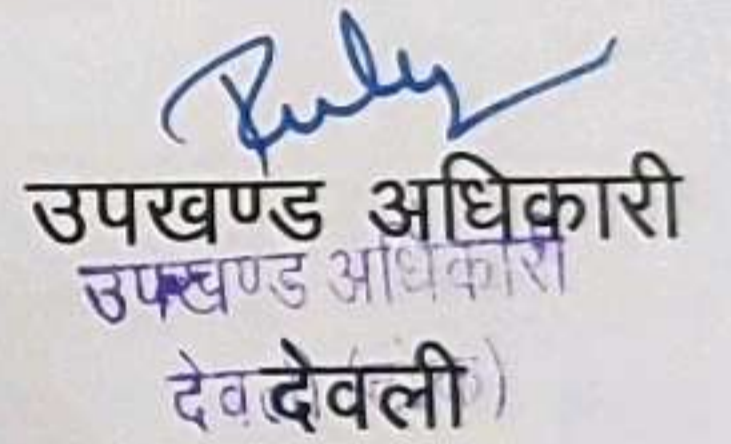 उपखण्ड अधिकारी
उपखण्ड अधिकारी
देवली